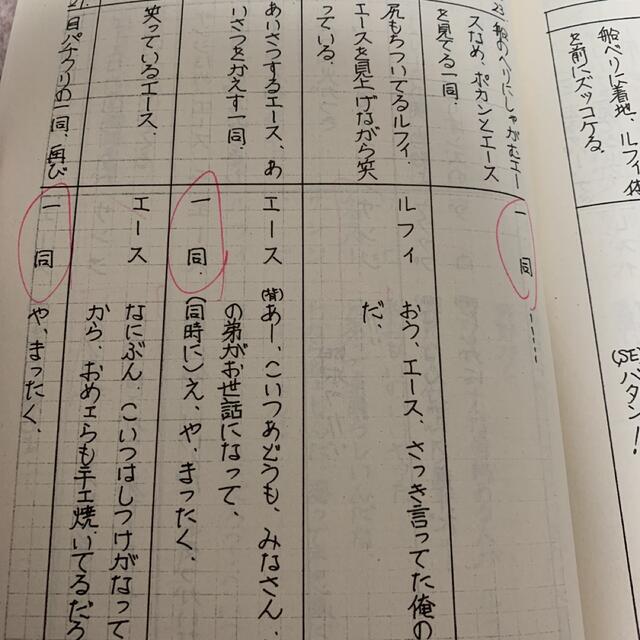 船べりに着地、ルフィ
を前にズッコケる。
(SE)バタン!
船のへりにしゃがむエー
スなめ、ポカンとエース
を見てる一同。
一同
‥‥‥
尻もちついてるルフィ、
エースを見上げながら笑
っている。
ルフィ
おう、エース、さっき言ってた俺の
だ、
あいさつするエース、あ
いさつをかえす一同。
エース
あー、こいつあどうも、みなさん、
の弟がお世話になって、
一同
(同時に)え、や、まったく、
笑っているエース、
エース
なにぶん、こいつはしつけがなって
から、おめェらも手エ焼いてるだろ
目パチクリの一同、再び
一同
や、まったく、